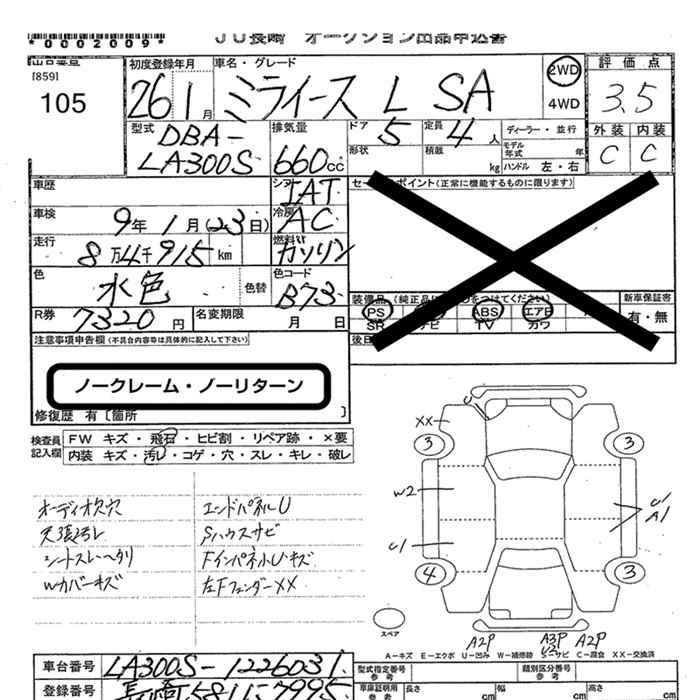 *0002009*
JU長崎 オークション出品申込書
[859]
105
初度登録年月 26 1月
車名・グレード ミライース L SA
2WD
4WD
評価点 3.5
外装 内装
C C
型式 DBA-LA300S
排気量 660cc
ドア 5
定員 4人
形状
積載 kg
ディーラー・並行
モデル年式 年
ハンドル 左・右
車歴
IAT
セールスポイント(正常に機能するものに限ります)
車検 9年 1月(23日)
冷房 AC
走行 8万4千915km
燃料 ガソリン
色 水色
色替
色コード B73
R券 7320円
名変期限 月 日
装備品 (純正品に○をつけてください)
PS ABS エアB
SR ナビ TV カワ
新車保証書
有・無
注意事項申告欄(不具合内容等は具体的に記入して下さい)
ノークレーム・ノーリターン
修復歴 有〔箇所 〕
検査員記入欄
FW キズ・飛石・ヒビ割・リペア跡・×要
内装 キズ・汚レ・コゲ・穴・スレ・キレ・破レ
オーディオ欠穴
天張汚レ
シートスレヘタリ
Wカバーキズ
エンドパネルU
Sハウスサビ
FインパネルUキズ
左FフェンダーXX
U
XX
3
3
W2
C1
C1
A1
4
3
スペア
A2P
A3P
A2P
A-キズ E-エクボ U-凹み W-補修跡 S-サビ C-腐食 XX-交換済
車台番号 LA300S-1226031
登録番号 長崎581い7995
型式指定番号
類別区分番号
車庫証明用参考
長さ cm
幅 cm
高さ cm